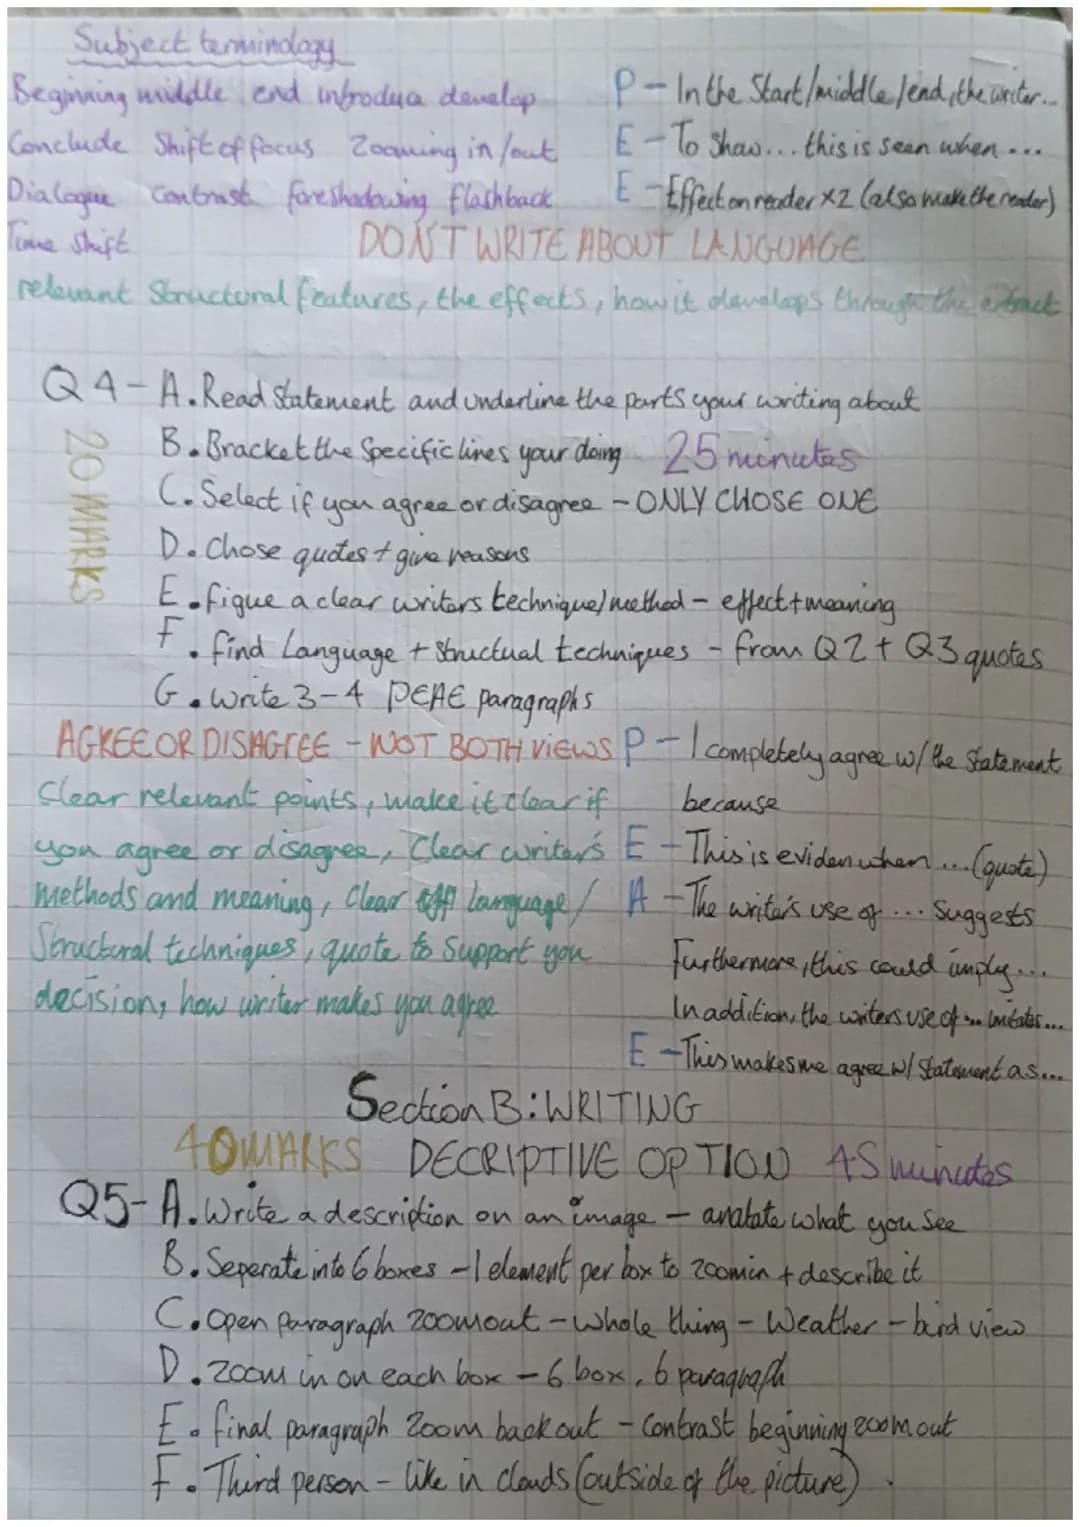 Subject terminology
Beginning middle end introduce develop
Conclude Shift of focus Zooming in/out
Dialogue Contrast foreshadowing flashback
Time Shift
P - In the Start/middle/end, the writer...
E - To Show... this is seen when ...
E - Effect on reader x2 (also make the reader)
DONT WRITE ABOUT LANGUAGE
relevant Structural features, the effects, how it develops through the extract
Q4 - A. Read Statement and underline the parts your writing about
20 MARKS
B. Bracket the Specific lines your doing 25 minutes
C. Select if you agree or disagree - ONLY CHOSE ONE
D. Chose quotes + give reasons
E. figue a clear writers technique/method - effect + meaning
F. find Language + Structual techniques - from Q2 + Q3 quotes
G. Write 3-4 PEAE paragraphs
AGREE OR DISAGREE - NOT BOTH VIEWS
Clear relevant points, make it clear if
you agree or disagree, Clear writer's
methods and meaning, Clear language/
Structural techniques, quote to Support you
decision, how writer makes you agree
P - I completely agree w/ the Statement
because
E - This is eviden when ... (quote)
A - The writer's use of ... Suggests
Furthermore, this could imply...
In addition, the writers use of ...
E - This makes me agree w/ Statement as...
Section B: WRITING
40 MARKS DECRIPTIVE OPTION 45 minutes
Q5 - A. Write a description on an image - anatate what you see
B. Seperate into 6 boxes - 1 element per box to zoom in + describe it
C. Open Paragraph zoom out - whole thing - Weather - bird view
D. zoom in on each box - 6 box, 6 paragraph
E. final paragraph zoom back out - Contrast beginning zoom out
F. Third person - like in clouds (outside of the picture)